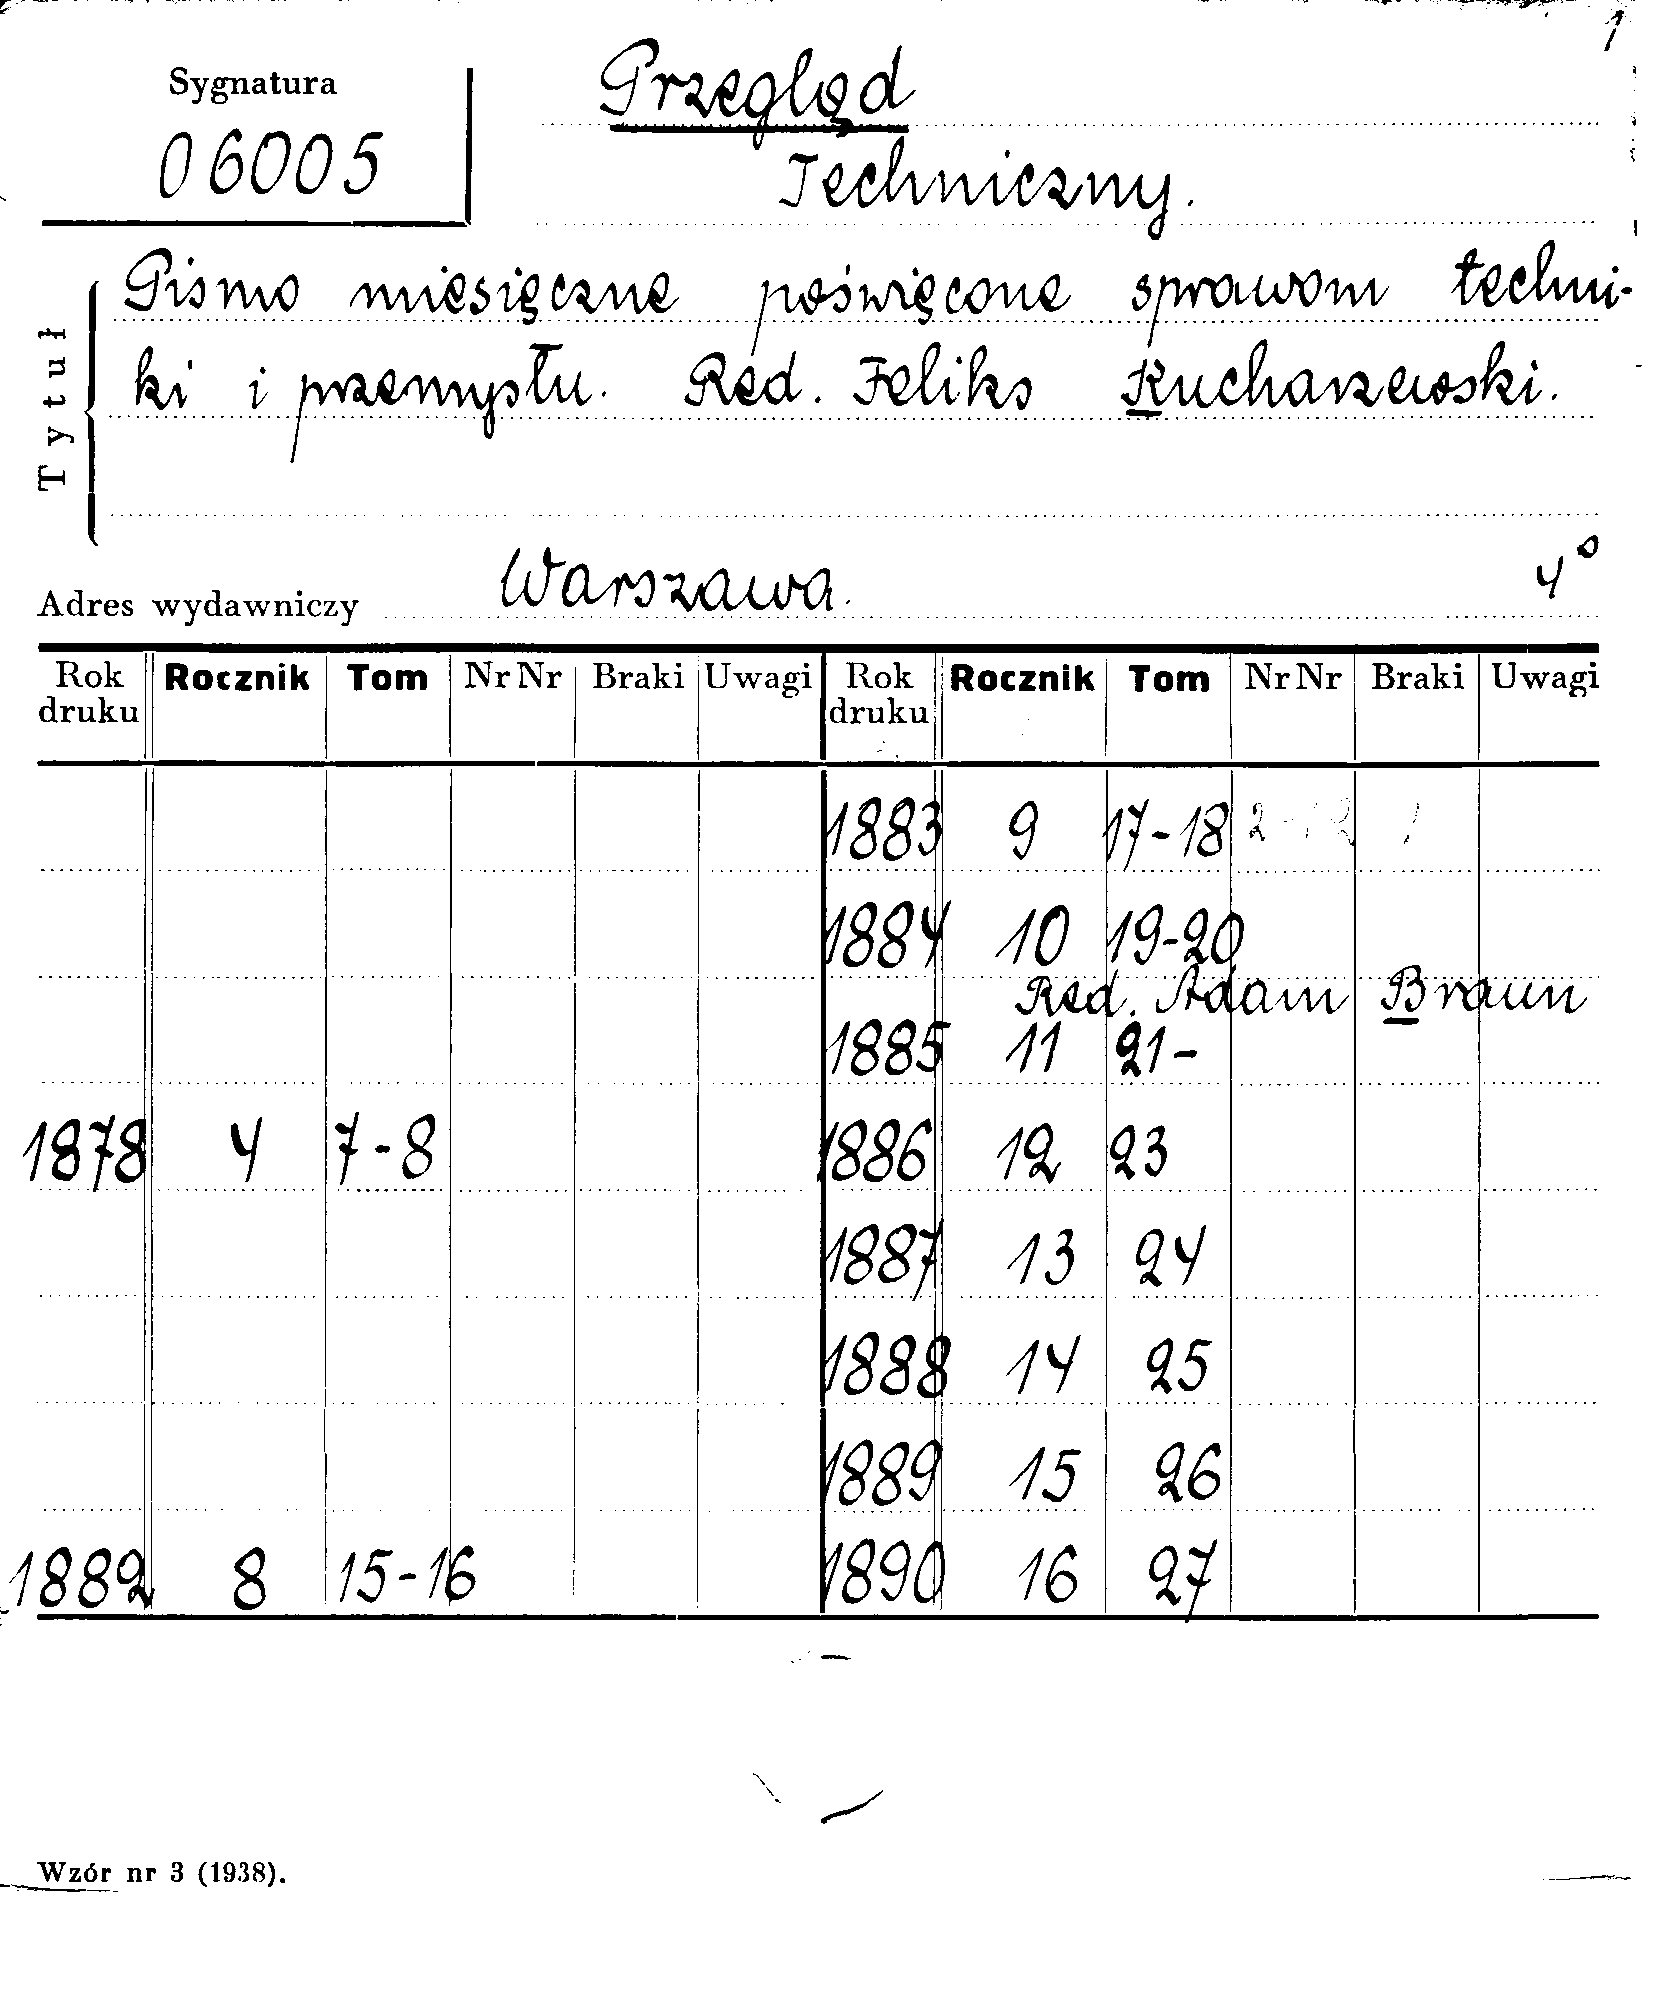 1
Sygnatura
06005
Przegląd
Techniczny.
Tytuł
Pismo miesięczne poświęcone sprawom techni-
ki i przemysłu. Red. Feliks Kucharzewski.
Adres wydawniczy Warszawa. 4°
Rok druku Rocznik Tom Nr Nr Braki Uwagi Rok druku Rocznik Tom Nr Nr Braki Uwagi
1883 9 17-18 2-12 1
1884 10 19-20
Red. Adam Braun
1885 11 21-
1878 4 7-8 1886 12 23
1887 13 24
1888 14 25
1889 15 26
1882 8 15-16 1890 16 27
Wzór nr 3 (1938).